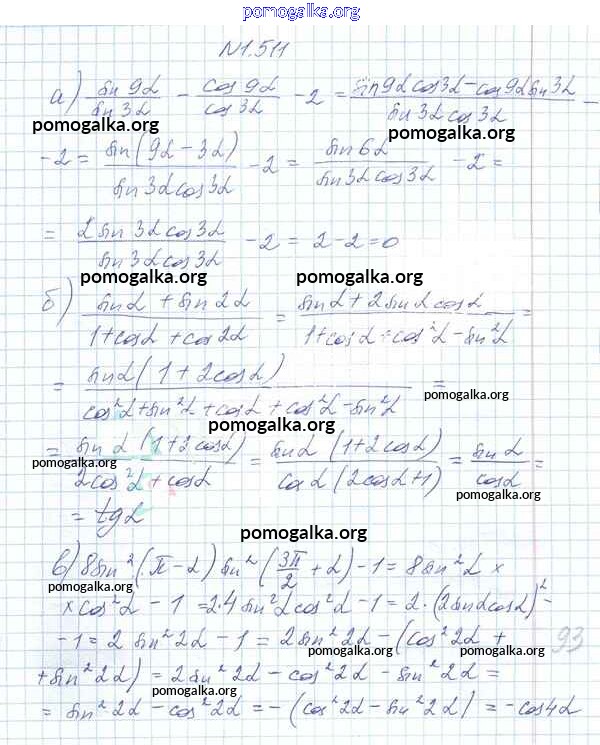 pomogalka.org
N1.511
а) sin 9α / sin 3α − cos 9α / cos 3α − 2 = (sin 9α cos 3α − cos 9α sin 3α) / (sin 3α cos 3α) −
pomogalka.org pomogalka.org
−2 = sin(9α − 3α) / (sin 3α cos 3α) − 2 = sin 6α / (sin 3α cos 3α) − 2 =
= 2 sin 3α cos 3α / (sin 3α cos 3α) − 2 = 2 − 2 = 0
pomogalka.org pomogalka.org
б) (sin α + sin 2α) / (1 + cos α + cos 2α) = (sin α + 2 sin α cos α) / (1 + cos α + cos²α − sin²α) =
= sin α (1 + 2cos α) / (cos²α + sin²α + cos α + cos²α − sin²α) =
pomogalka.org
pomogalka.org
= sin α (1 + 2 cos α) / (2cos²α + cos α) = sin α (1 + 2 cos α) / (cos α (2cos α + 1)) = sin α / cos α =
pomogalka.org
pomogalka.org
= tg α
pomogalka.org
в) 8 sin²(π − α) sin²(3π/2 + α) − 1 = 8 sin²α ×
× cos²α − 1 = 2·4 sin²α cos²α − 1 = 2·(2 sin α cos α)² −
pomogalka.org pomogalka.org
− 1 = 2 sin² 2α − 1 = 2 sin² 2α − (cos² 2α +
pomogalka.org
93
+ sin² 2α) = 2 sin² 2α − cos² 2α − sin² 2α =
pomogalka.org pomogalka.org
= sin² 2α − cos² 2α = − (cos² 2α − sin² 2α) = − cos 4α